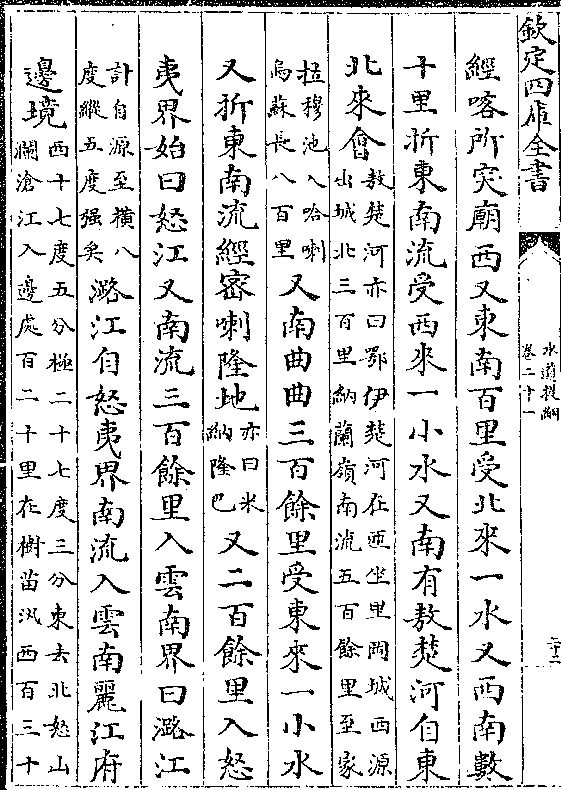 欽定四庫全書
水道提綱
卷二十一
二十二
經喀所突廟西又東南百里受北來一水又西南數
十里折東南流受西來一小水又南有敖楚河自東
北來會敖楚河亦曰鄂伊楚河在匝坐里岡城西源
出城北三百里納蘭嶺南流五百餘里至家
拉穆池入哈喇
烏蘇長八百里又南曲曲三百餘里受東來一小水
又折東南流經密喇隆地亦曰米
納隆巴又二百餘里入怒
夷界始曰怒江又南流三百餘里入雲南界曰潞江
計自源至橫八
度縱五度强矣潞江自怒夷界南流入雲南麗江府
邊境西十七度五分極二十七度三分東去北怒山
瀾滄江入邊處百二十里在樹苗汛西百三十